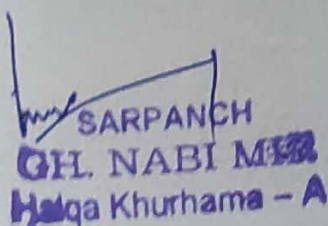 SARPANCH
GH. NABI MIR
Halqa Khurhama – A